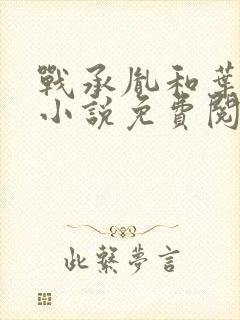 戰承胤和葉
小說免費閱
此繫夢言